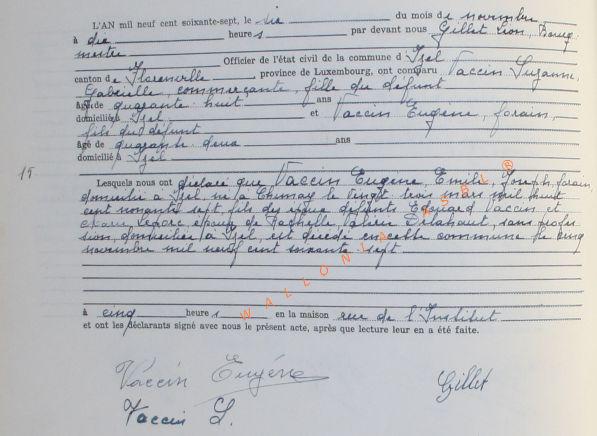 L'AN mil neuf cent soixante-sept, le six du mois de novembre
à dix heures par devant nous Gillet Léon, Bourg-
mestre Officier de l'état civil de la commune d'Izel
canton de Florenville, province de Luxembourg, ont comparu Vaccin Suzanne,
Gabrielle, commerçante, fille du défunt
âgé de quarante huit ans
domicilié à Izel, et Vaccin Eugène, forain,
fils du défunt
âgé de quarante deux ans
domicilié à Izel
15
Lesquels nous ont déclaré que Vaccin Eugène, Emile, Joseph, forain,
domicilié à Izel, né à Chimay le vingt trois mars mil huit
cent nonante sept, fils des époux défunts Edouard Vaccin et
Lepère, époux de Rachelle, Valérie Delahaut, sans profes-
sion, domiciliée à Izel, est décédé en cette commune le cinq
novembre mil neuf cent soixante sept
à cinq heures en la maison rue de l'Institut
et ont les déclarants signé avec nous le présent acte, après que lecture leur en a été faite.
Vaccin Eugène
Gillet
Vaccin S.
WALLONIA ASBL ®